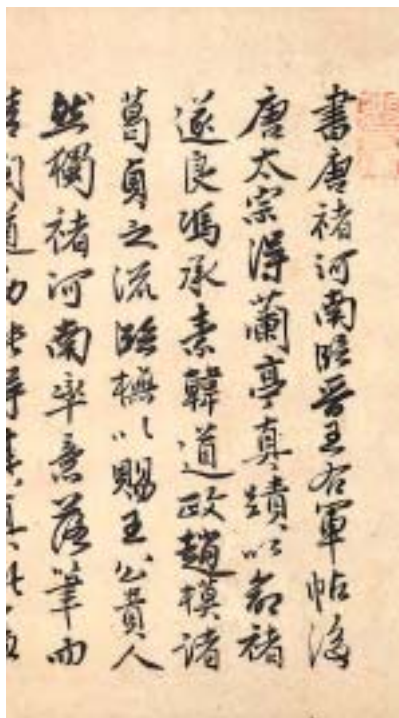 書唐褚河南臨晉王右軍帖後
唐太宗得蘭亭真蹟以命褚
遂良馮承素韓道政趙模諸
葛貞之流臨橅以賜王公貴人
然獨褚河南率意落筆而